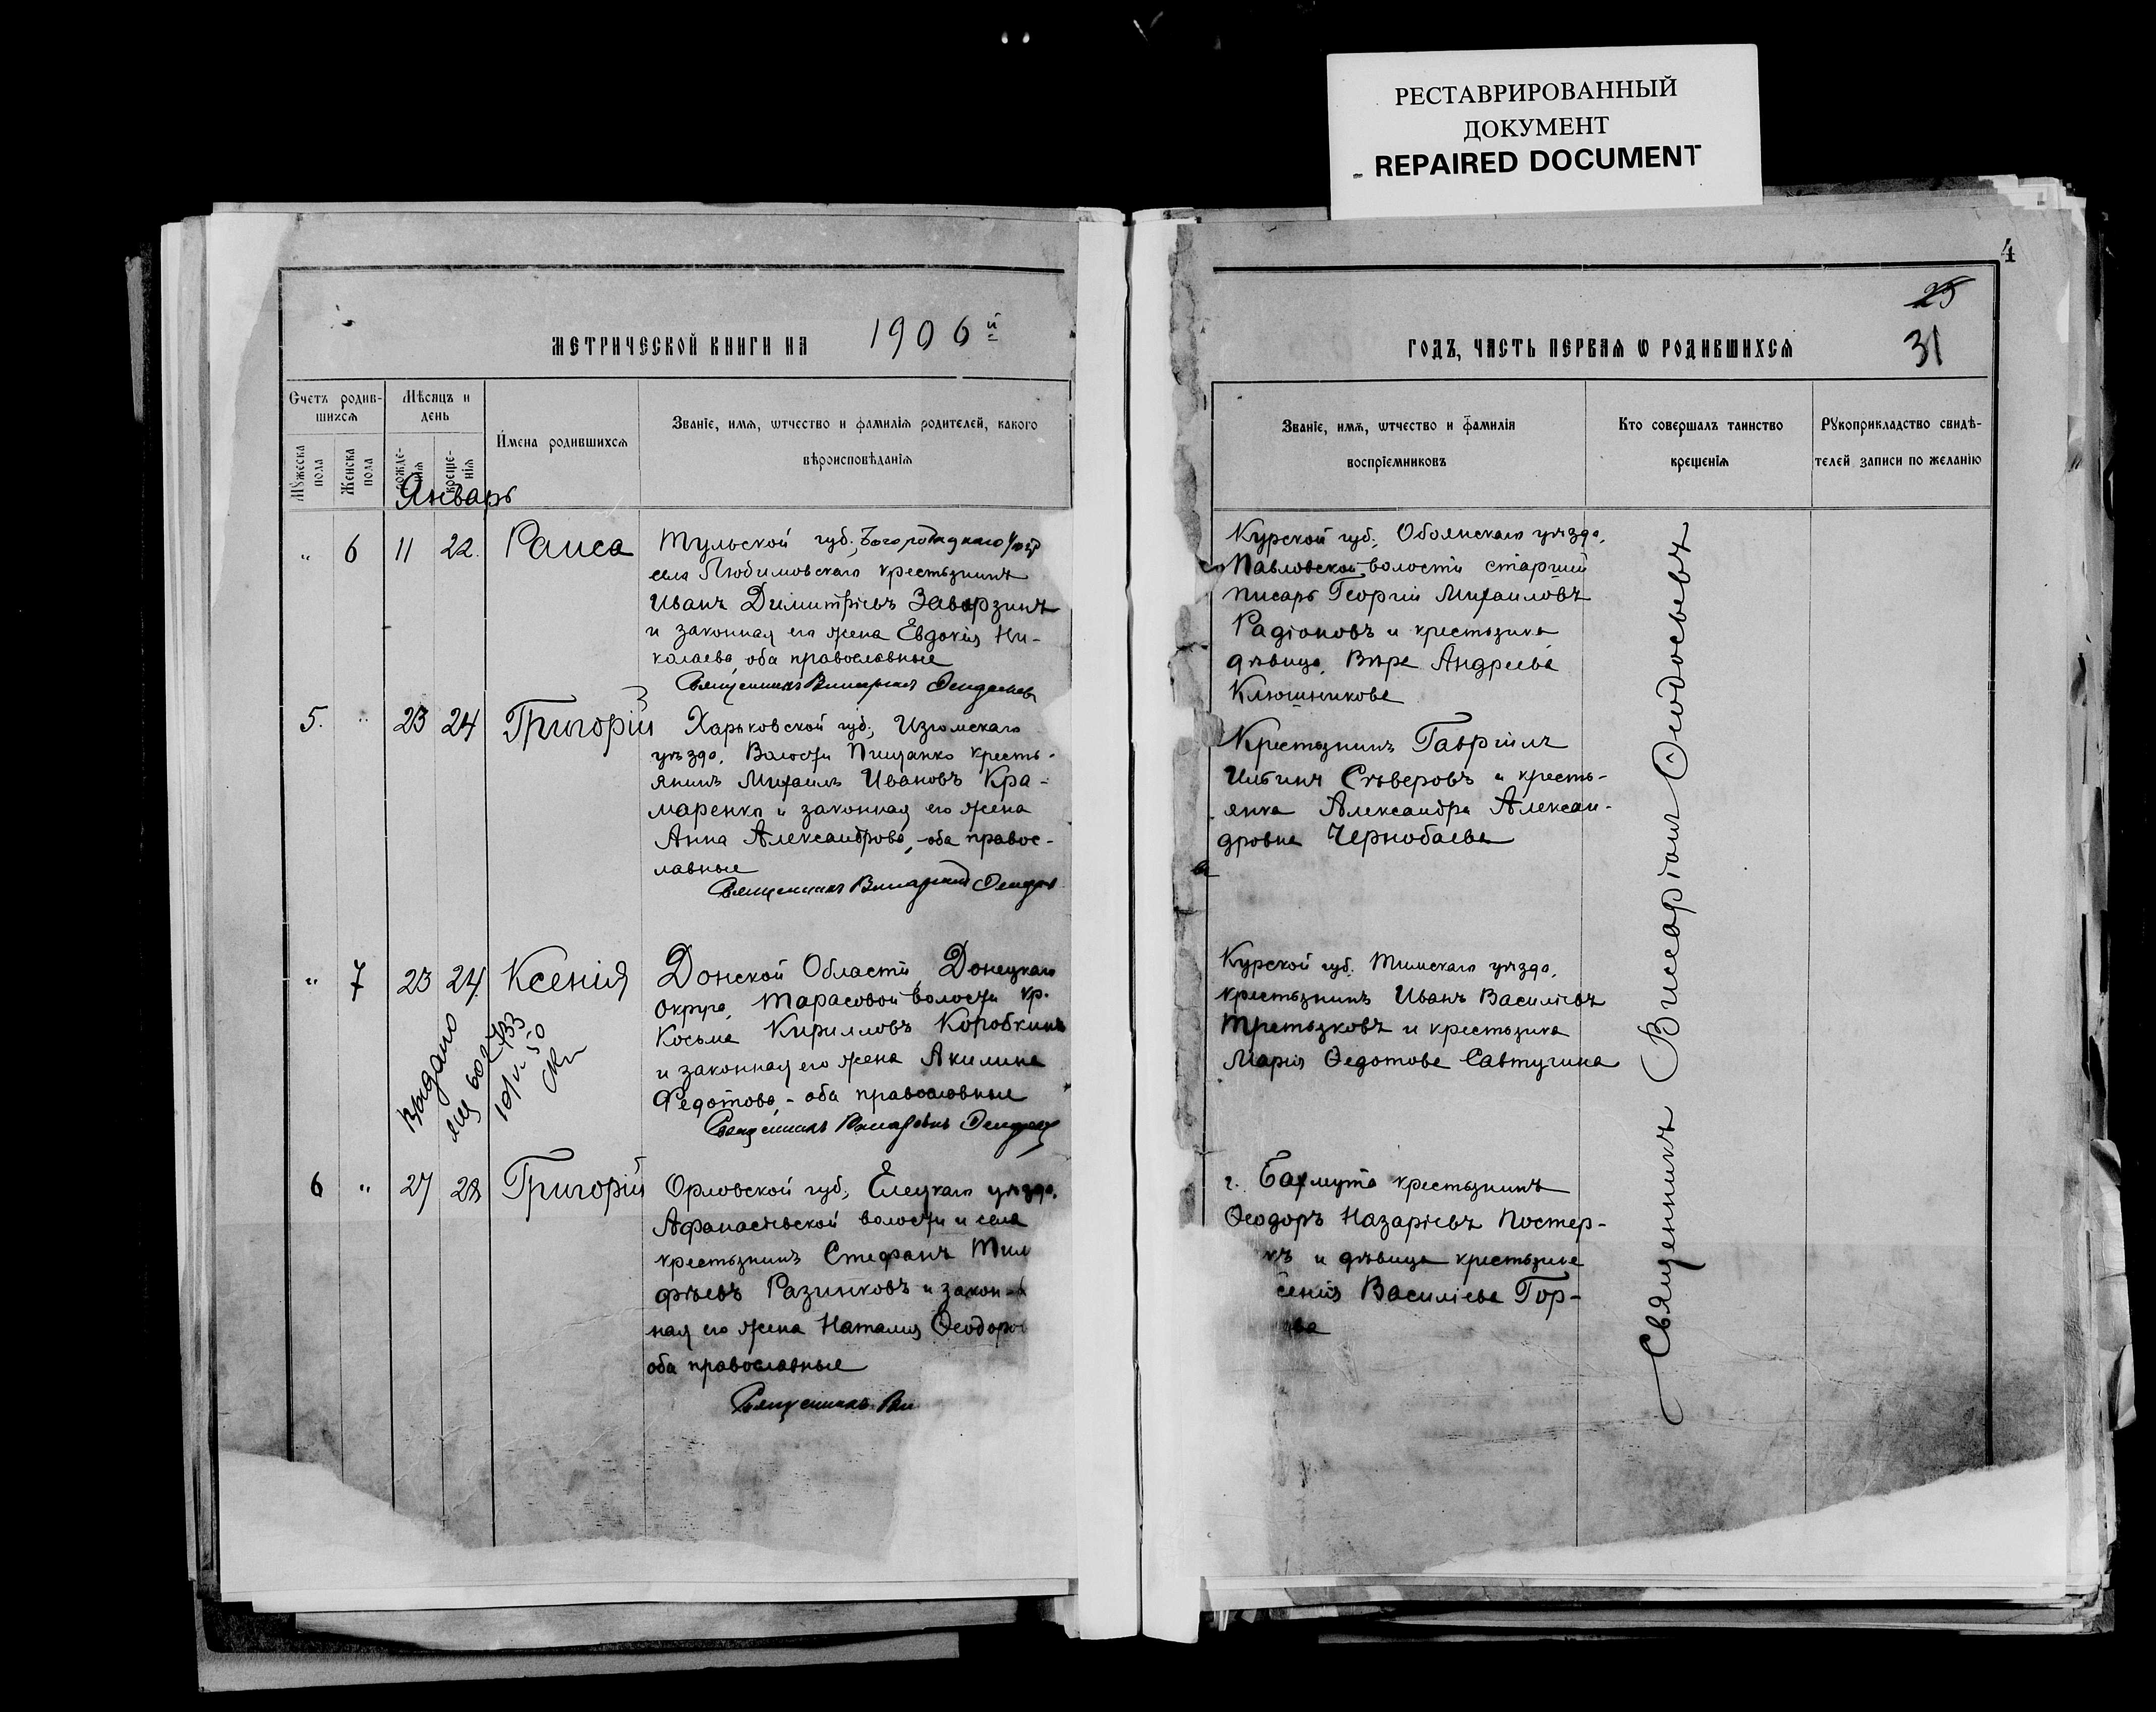 РЕСТАВРИРОВАННЫЙ
ДОКУМЕНТ
REPAIRED DOCUMENT
4
25
31
МЕТРИЧЕСКОЙ КНИГИ НА 1906й
ГОДЪ, ЧАСТЬ ПЕРВАЯ Ѡ РОДИВШИХСЯ
Счетъ родив-
шихся
Мѣсяцъ и
день
Мужеска
пола
Женска
пола
рожде-
нія
креще-
нія
Имена родившихся
Званіе, имя, ѡтчество и фамилія родителей, какого
вѣроисповѣданія
Званіе, имя, ѡтчество и фамилія
воспріемниковъ
Кто совершалъ таинство
крещенія
Рукоприкладство свидѣ-
телей записи по желанію
Январь
" 6 11 22. Раиса
Тульской губ., Богородицкаго уѣзд
села Любимовскаго крестьянинъ
Иванъ Димитріевъ Заварзинъ
и законная его жена Евдокія Ни-
колаева, оба православные
Священникъ Виссаріонъ Ѳеодосьевъ
Курской губ., Обоянскаго уѣзда,
Павловской волости старшій
писарь Георгій Михаиловъ
Радіоновъ и крестьянка
дѣвица, Вѣра Андреева
Клюшникова
5. " 23 24 Григорій
Харьковской губ., Изюмскаго
уѣзда, Волости Пищанко кресть-
янинъ Михаилъ Ивановъ Кра-
маренко и законная его жена
Анна Александрова, оба правос-
лавные
Священникъ Виссаріонъ Ѳеодос
Крестьянинъ Гавріилъ
Ильинъ Сѣверовъ и кресть-
янка Александра Алексан-
дровна Чернобаева
" 7 23 24. Ксенія
Донской Области, Донецкаго
округа, Тарасовой волости кр.
Косьма Кирилловъ Коробкинъ
и законная его жена Акилина
Федотова, - оба православные
Священникъ Виссаріонъ Ѳеодос
Выдано
10/V 50
Курской губ. Тимскаго уѣзда,
крестьянинъ Иванъ Василіевъ
Третьяковъ и крестьянка
Марія Ѳедотова Савтугина
6 " 27 28 Григорій
Орловской губ., Елецкаго уѣзда,
Афанасіевской волости и села
крестьянинъ Стефанъ Тим
фѣевъ Разинковъ и закон-
ная его жена Наталія Ѳеодоров
оба православные
Священникъ Ви
г. Бахмута крестьянинъ
Ѳеодоръ Назаріевъ Постер-
къ и дѣвица крестьянка
сенія Василіева Гор-
ва
Священникъ Виссаріонъ Ѳеодосьевъ